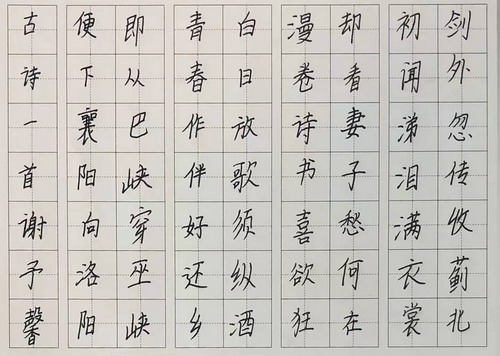 剑外忽传收蓟北
初闻涕泪满衣裳
却看妻子愁何在
漫卷诗书喜欲狂
白日放歌须纵酒
青春作伴好还乡
即从巴峡穿巫峡
便下襄阳向洛阳
古诗一首谢予馨